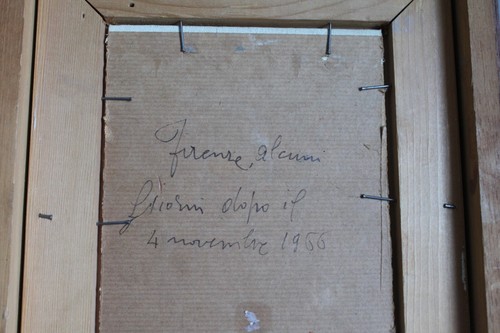 Firenze, alcuni
Giorni dopo il
4 novembre 1966